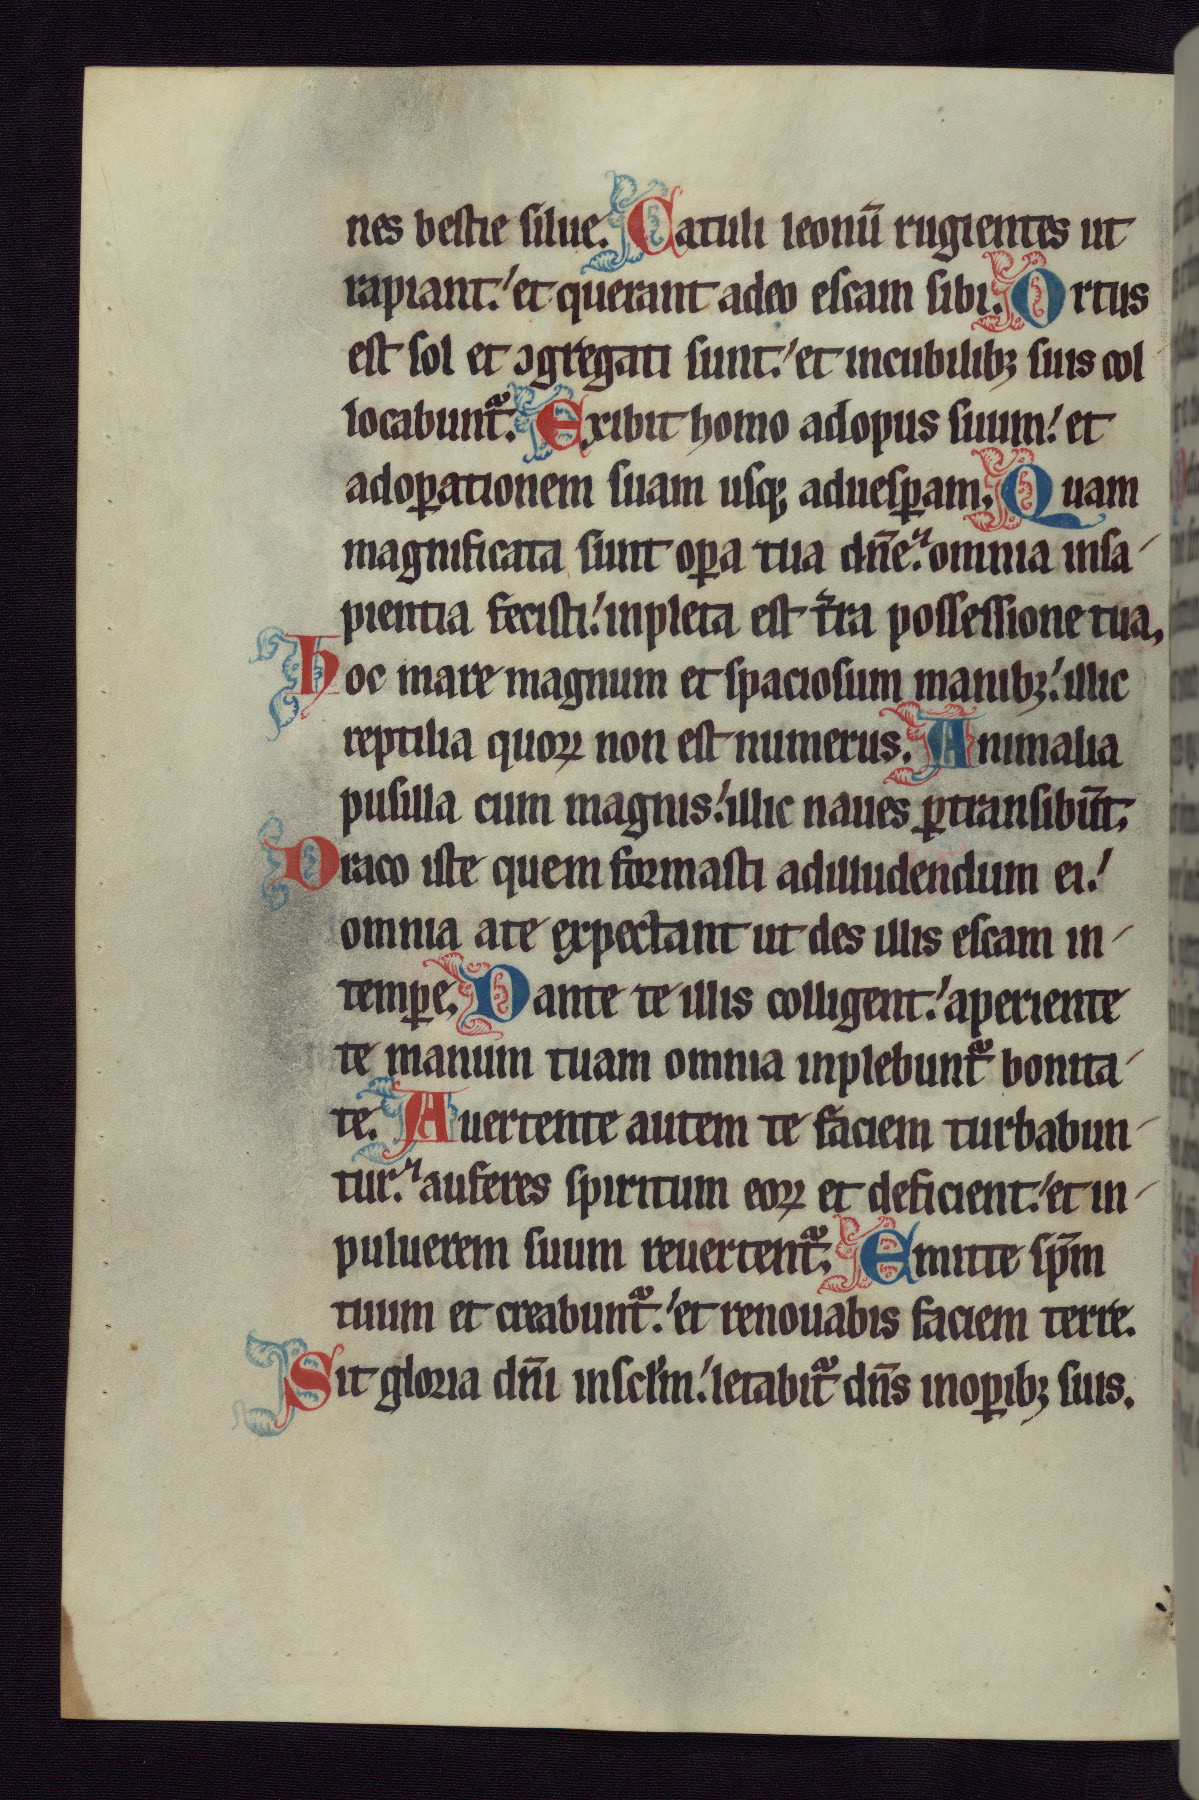 nes bestie silue. Catuli leonū rugientes ut
rapiant. et querant adeo escam sibi. Ortus
est sol et ꝯgregati sunt. et incubilibꝫ suis col
locabunt᷑. Exibit homo adopus suum. et
adoꝑationem suam usqꝫ aduesꝑam. Quam
magnificata sunt oꝑa tua dn̄e. omnia insa-
pientia fecisti. inpleta est t̄ra possessione tua.
Hoc mare magnum et spaciosum manibꝫ. illic
reptilia quoꝝ non est numerus. Animalia
pusilla cum magnis. illic naues ꝑtransibūt.
Draco iste quem formasti adilludendum ei.
omnia ate expectant ut des illis escam in-
temꝑe. Dante te illis colligent. aperiente
te manum tuam omnia inplebunt᷑ bonita-
te. Auertente autem te faciem turbabun-
tur. auferes spiritum eoꝝ et deficient. et in-
puluerem suum reuertent᷑. Emitte sp̄m
tuum et creabunt᷑. et renouabis faciem terre.
Sit gloria dn̄i insclm̄. letabit᷑ dn̄s inoꝑibꝫ suis.